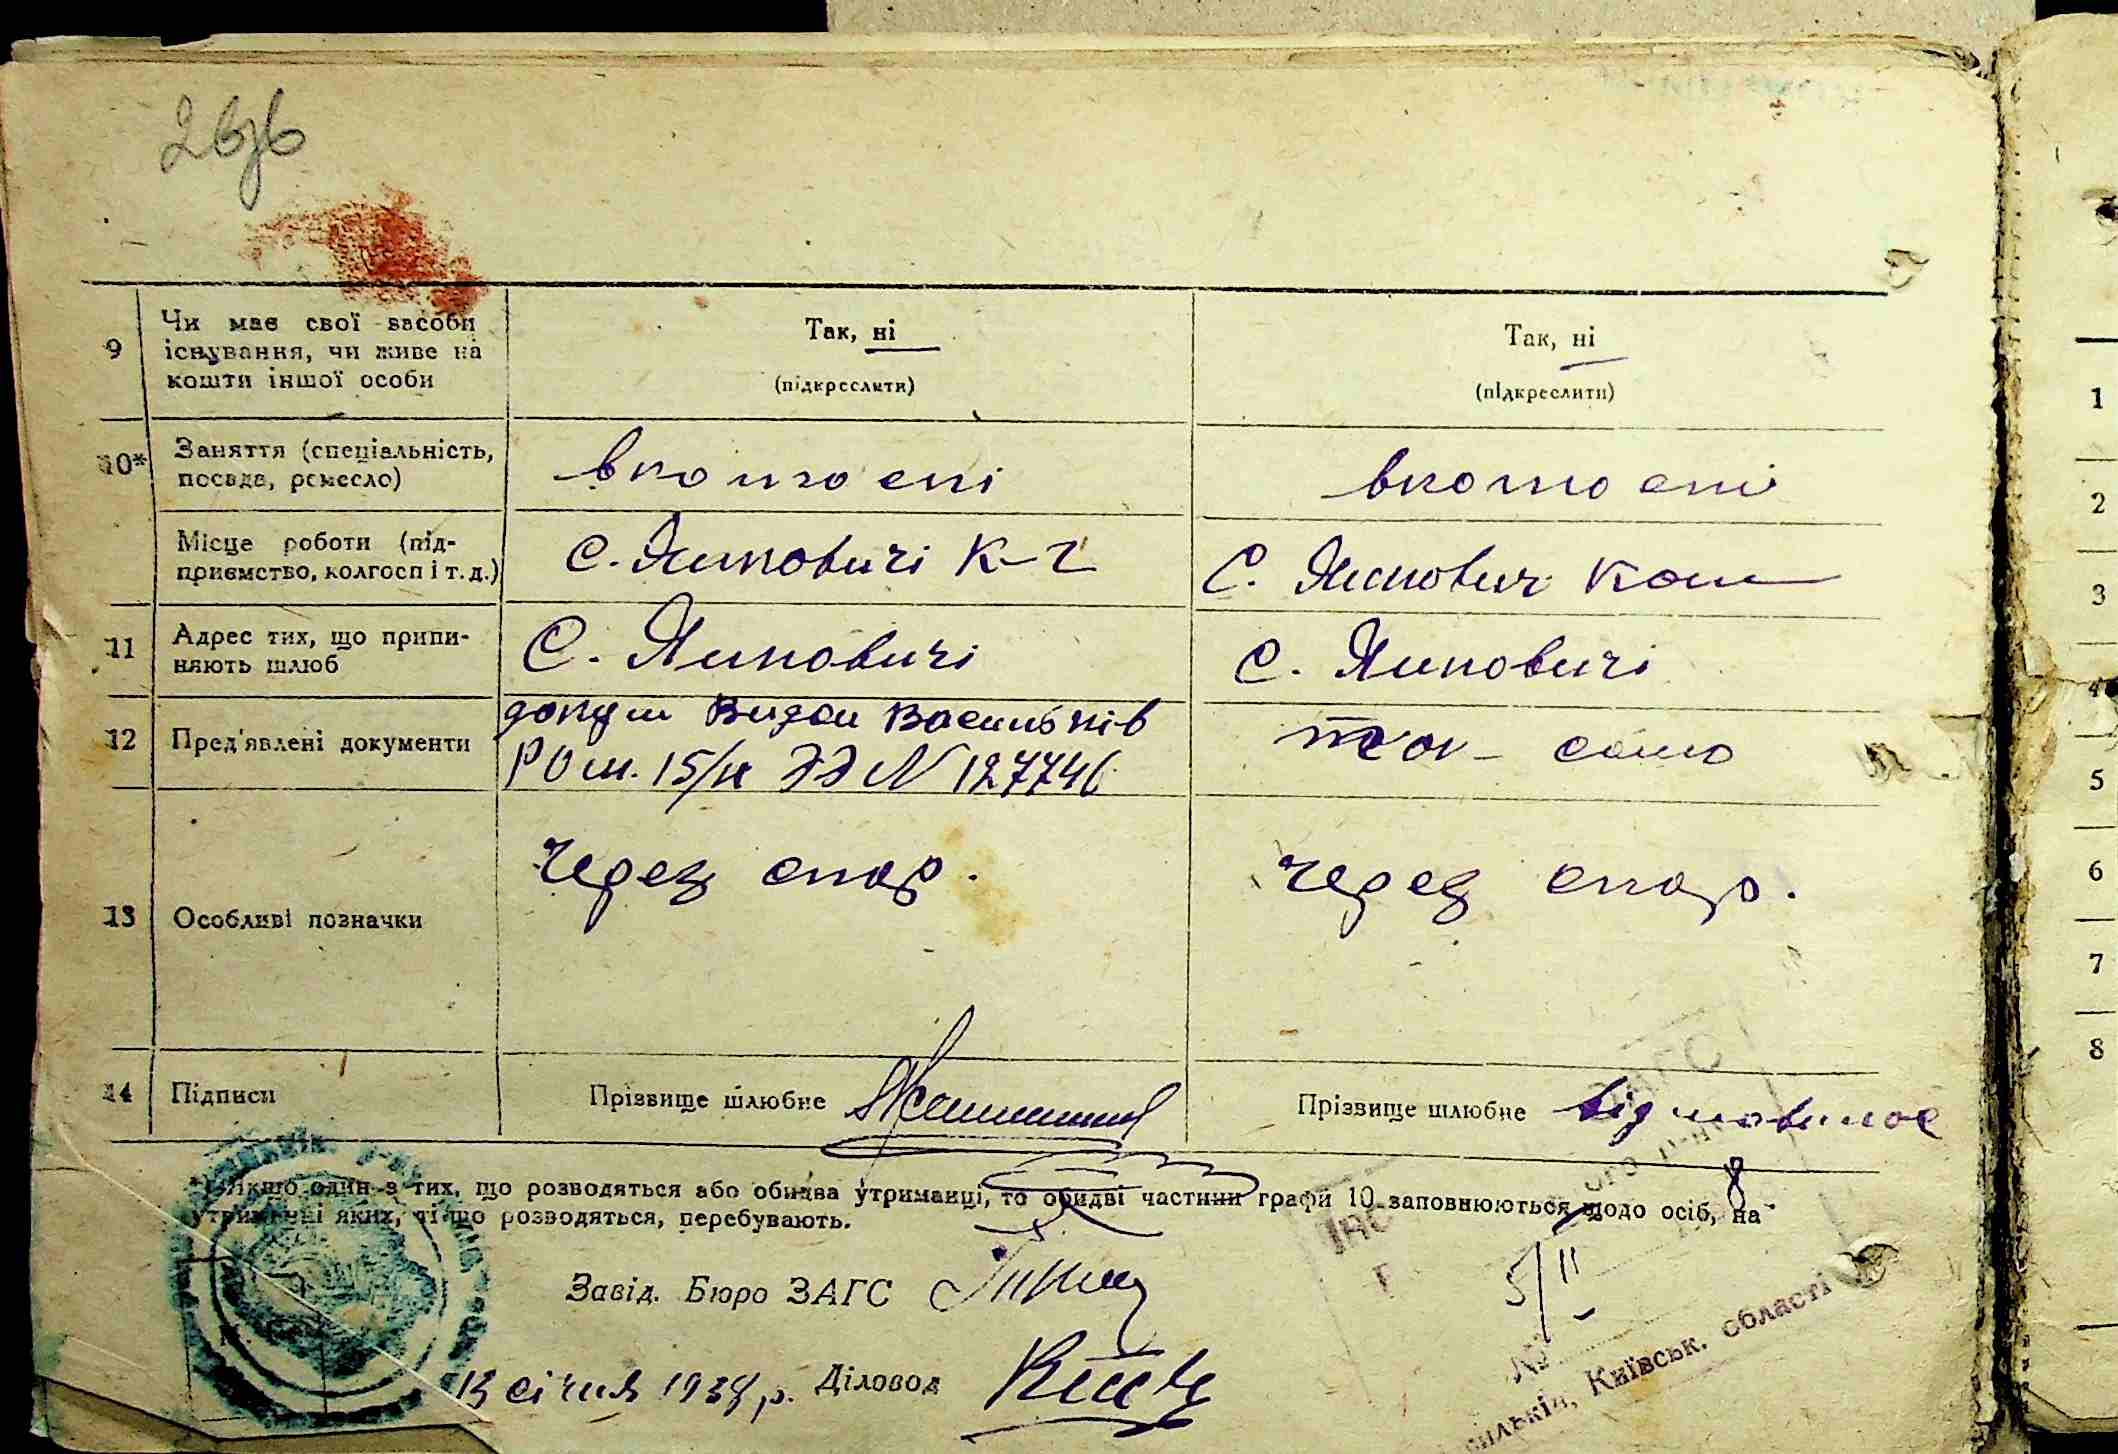 9 Чи має свої засоби існування, чи живе на кошти іншої особи
Так, ні
(підкреслити)
Так, ні
(підкреслити)
10* Заняття (спеціальність, посада, ремесло)
в колгоспі
в колгоспі
Місце роботи (підприємство, колгосп і т. д.)
С. Яцковичі К-г
С. Яцкович
11 Адрес тих, що припиняють шлюб
С. Яцковичі
С. Яцковичі
12 Пред'явлені документи
докум Видан Васильків
15/ІХ ЭЭ N 127746
так само
13 Особливі позначки
через спор.
через спор.
14 Підписи
Прізвище шлюбне
Прізвище шлюбне відмовилас
* Якщо один з тих, що розводяться або обидва утриманці, то обидві частини графи 10 заповнюються щодо осіб, на
утриманні яких, ті що розводяться, перебувають.
Завід. Бюро ЗАГС
5/II
13 січня 1938 р. Діловод
ЗАГС
№
Київськ. області
1
2
3
4
5
6
7
8